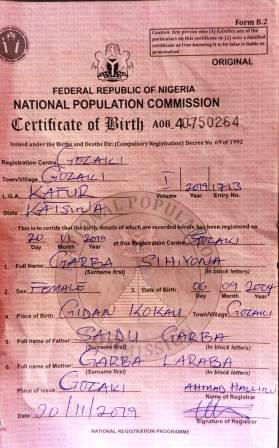 Form B.2
Caution: Any person who (1) falsifies any of the
particulars on this certificate or (2) uses a falsified
certificate as true knowing it to be false is liable to
prosecution
ORIGINAL
FEDERAL REPUBLIC OF NIGERIA
NATIONAL POPULATION COMMISSION
Certificate of Birth A08 40750264
Issued under the Births and Deaths Etc; (Compulsory Registration) Decree No. 69 of 1992
Registration Centre GOZAKI
Town/Village GOZAKI
L.G.A. KAFUR I 2019 1713
Volume Year Entry No.
State KATSINA
This is to certify that the birth, details of which are recorded herein has been registered on
20 11 2019 at this Registration Centre GOZAKI
Day Month Year
1. Full Name GARBA SIHIYONA
(Surname first) (In block letters)
2. Sex FEMALE 3. Date of Birth 06 09 2004
Day Month Year
4. Place of Birth GIDAN KOKAU Town/Village GOZAKI
5. Full name of Father SAIDU GARBA
(Surname first) (In block letters)
6. Full name of Mother GARBA LARABA
(Surname first) (In block letters)
Place of Issue GOZAKI AHMAD
Name of Registrar
Date 20/11/2019
Signature of Registrar
NATIONAL REGISTRATION PROGRAMME